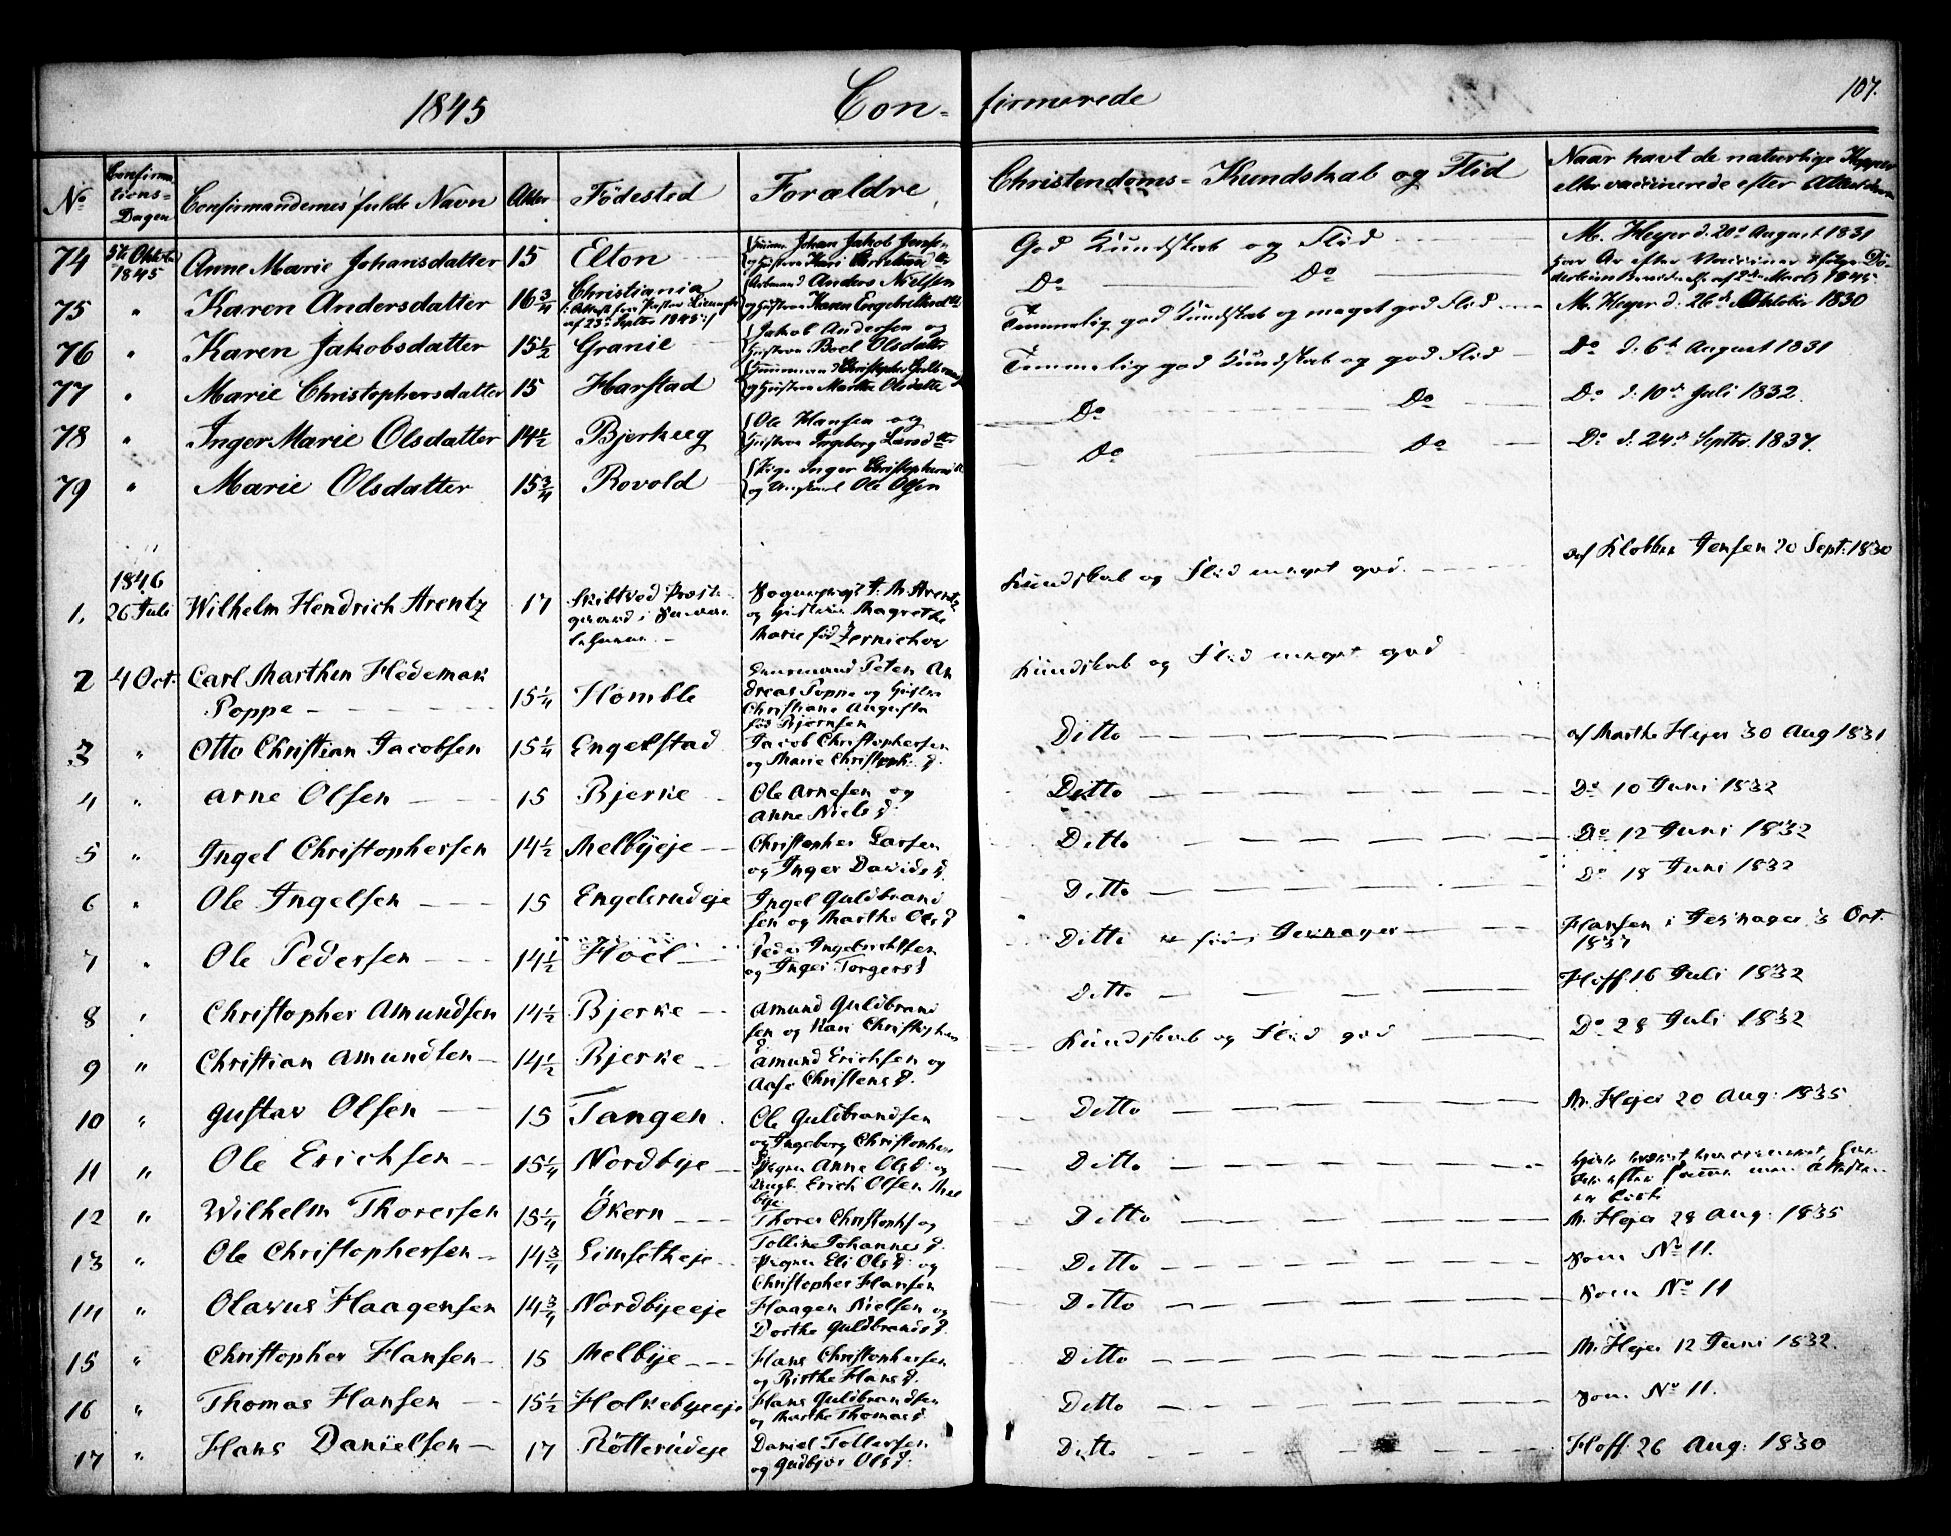 1845 Con- firmerede 107.
No Confirmations-Dagen Confirmandernes fulde Navn Alder Fødested Forældre Christendoms-Kundskab og Flid Naar havt de naturlige Kopper eller vaccinerede efter Attest
74 5te Oktober 1845 Anne Marie Johansdatter 15 Elton Johan Jakob Jensen og Hustru Kari God Kundskab og Flid M. Heyer d. 20de August 1831
75 " Karen Andersdatter 16 3/4 Christiania Anders Nielsen og Hustru Karen Do Do
76 " Karen Jakobsdatter 15 1/2 Granie Jakob Andersen og Hustru Boel Olsdatter Temmelig god Kundskab og meget god Flid M. Heyer d. 26de Oktober 1830
77 " Marie Christophersdatter 15 Harstad Christopher og Hustru Marthe Olsdatter Temmelig god Kundskab og god Flid Do d. 6te August 1831
78 " Inger Marie Olsdatter 14 1/2 Bjerkeeg Ole Hansen og Hustru Ingeborg Do Do Do d. 10de Juli 1832
79 " Marie Olsdatter 15 3/4 Rovold Pige Inger og Ole Olsen Do Do Do d. 24de Septbr. 1837.
1846
1. 26 Juli Wilhelm Hendrich Arentz 17 Skibtved Arentz og Hustru Magrethe Marie fød Kundskab og Flid meget god af Klokker Jensen 20 Sept: 1830
2 4 Oct: Carl Marthin Hedemark Poppe 15 1/4 Homble Peter Andreas Poppe og Hustru Christiane Augusta fød Bjørnsen Kundskab og Flid meget god
3 " Otto Christian Jacobsen 15 1/4 Engelstad Jacob Christophersen og Marie Christoph. d. Ditto af Marthe Hejer 30 Aug 1831
4 " Arne Olsen 15 Bjerke Ole Arnesen og Anne Niels d. Ditto Do 10 Juni 1832
5 " Ingel Christophersen 14 1/2 Melbyeje Christopher Larsen og Inger Davids d. Ditto Do 12 Juni 1832
6 " Ole Ingelsen 15 Engelerudeje Ingel Guldbrandsen og Marthe Ols d. Ditto Do 18 Juni 1832
7 " Ole Pedersen 14 1/2 Hoel Peder Ingebrichtsen og Inger Torgers d. Ditto Hansen i Jevnager 3 Oct. 1837
8 " Christopher Amundsen 14 1/2 Bjerke Amund Guldbrandsen og Kari Christophers d. Ditto Hoff 16 Juli 1832
9 " Christian Amundsen 14 1/2 Bjerke Amund Erichsen og Aase Christens d. Kundskab og Flid god Do 28 Juli 1832
10 " Gustav Olsen 15 Tangen Ole Guldbrandsen og Ingeborg Christophers d. Ditto M. Hejer 20 Aug: 1835
11 " Ole Erichsen 15 1/4 Nordbye Pigen Anne Ols d. og Ungk. Erich Olsen Ditto
12 " Wilhelm Thoresen 15 1/4 Økern Thorer Christophs og Tolline Johannes d. Ditto M. Hejer 28 Aug: 1835
13 " Ole Christophersen 14 3/4 Limsetheje Pigen Eli Ols d. og Christopher Hansen Ditto som No 11.
14 " Olavus Haagensen 14 3/4 Nordbyeeje Haagen Nielsen og Dorthe Guldbrands d. Ditto som No 11
15 " Christopher Hansen 15 Melbye Hans Christophersen og Birthe Hans d. Ditto M. Hejer 12 Juni 1832.
16 " Thomas Hansen 15 1/2 Holkebyeeje Hans Guldbrandsen og Marthe Thomas d. Ditto som No 11.
17 " Hans Danielsen 17 Røtterudeje Daniel Tollersen og Gudbjør Ols d. Ditto Hoff 26 Aug: 1830